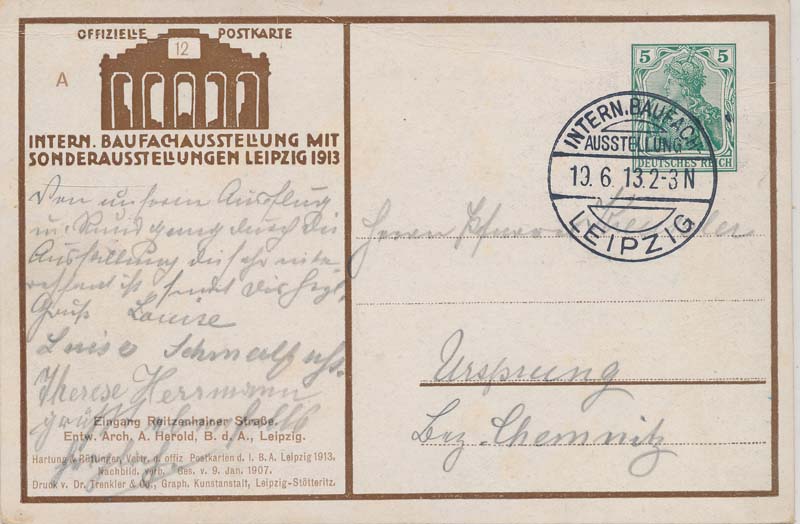 OFFIZIELLE POSTKARTE
12
A
INTERN. BAUFACHAUSSTELLUNG MIT
SONDERAUSSTELLUNGEN LEIPZIG 1913
Von unserem Ausflug
u. Rundgang durch die
Ausstellung die sehr inte
ressant ist sendet Dir herzl.
Gruß Louise
Luise Schmalfuß.
Therese Herrmann
grüßt
Eingang Reitzenhainer Straße.
Entw. Arch. A. Herold, B. d. A., Leipzig.
Hartung & Vertr. d. offiz Postkarten d. I. B. A. Leipzig 1913.
Nachbild. verb. Ges. v. 9. Jan. 1907.
Druck v. Dr. Trenkler & Co., Graph. Kunstanstalt, Leipzig-Stötteritz.
5 5
DEUTSCHES REICH
INTERN. BAUFACH
AUSSTELLUNG
19. 6. 13. 2-3 N
LEIPZIG
Herrn Pfarrer
Ursprung
Bez. Chemnitz